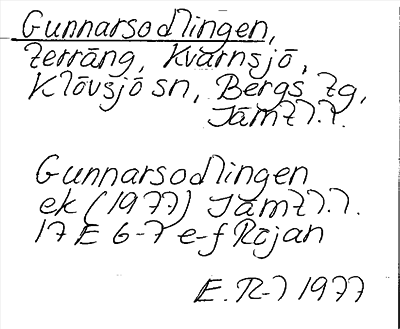 Gunnarsodlingen,
terräng, Kvarnsjö,
Klövsjö sn, Bergs tg,
Jämtl.l.
Gunnarsodlingen
ek (1977) Jämtl.l.
17 E 6-7 e-f Röjan
E. R-l 1977